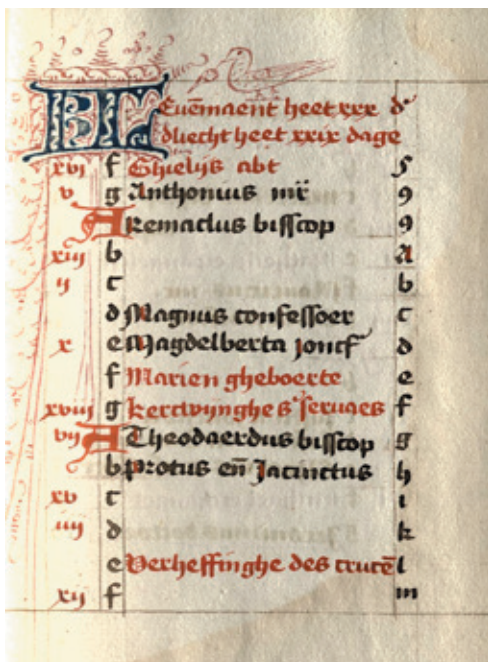 KL Euēmaent heet xxx d'
dliecht heet xxix dage
xvi f Ghielijs abt s
v g Anthonius mr̄ 9
A Remaclus bisscop 9
xiij b a
ij c b
d Magnus confessoer c
x e Magdelberta joncf d
f Marien gheboerte e
xviij g kercwijnghe s' servaes f
vij A Theodaerdus bisscop g
b Protus eñ Jacinctus h
xv c i
iiij d k
e Verheffinghe des crucē l
xij f m